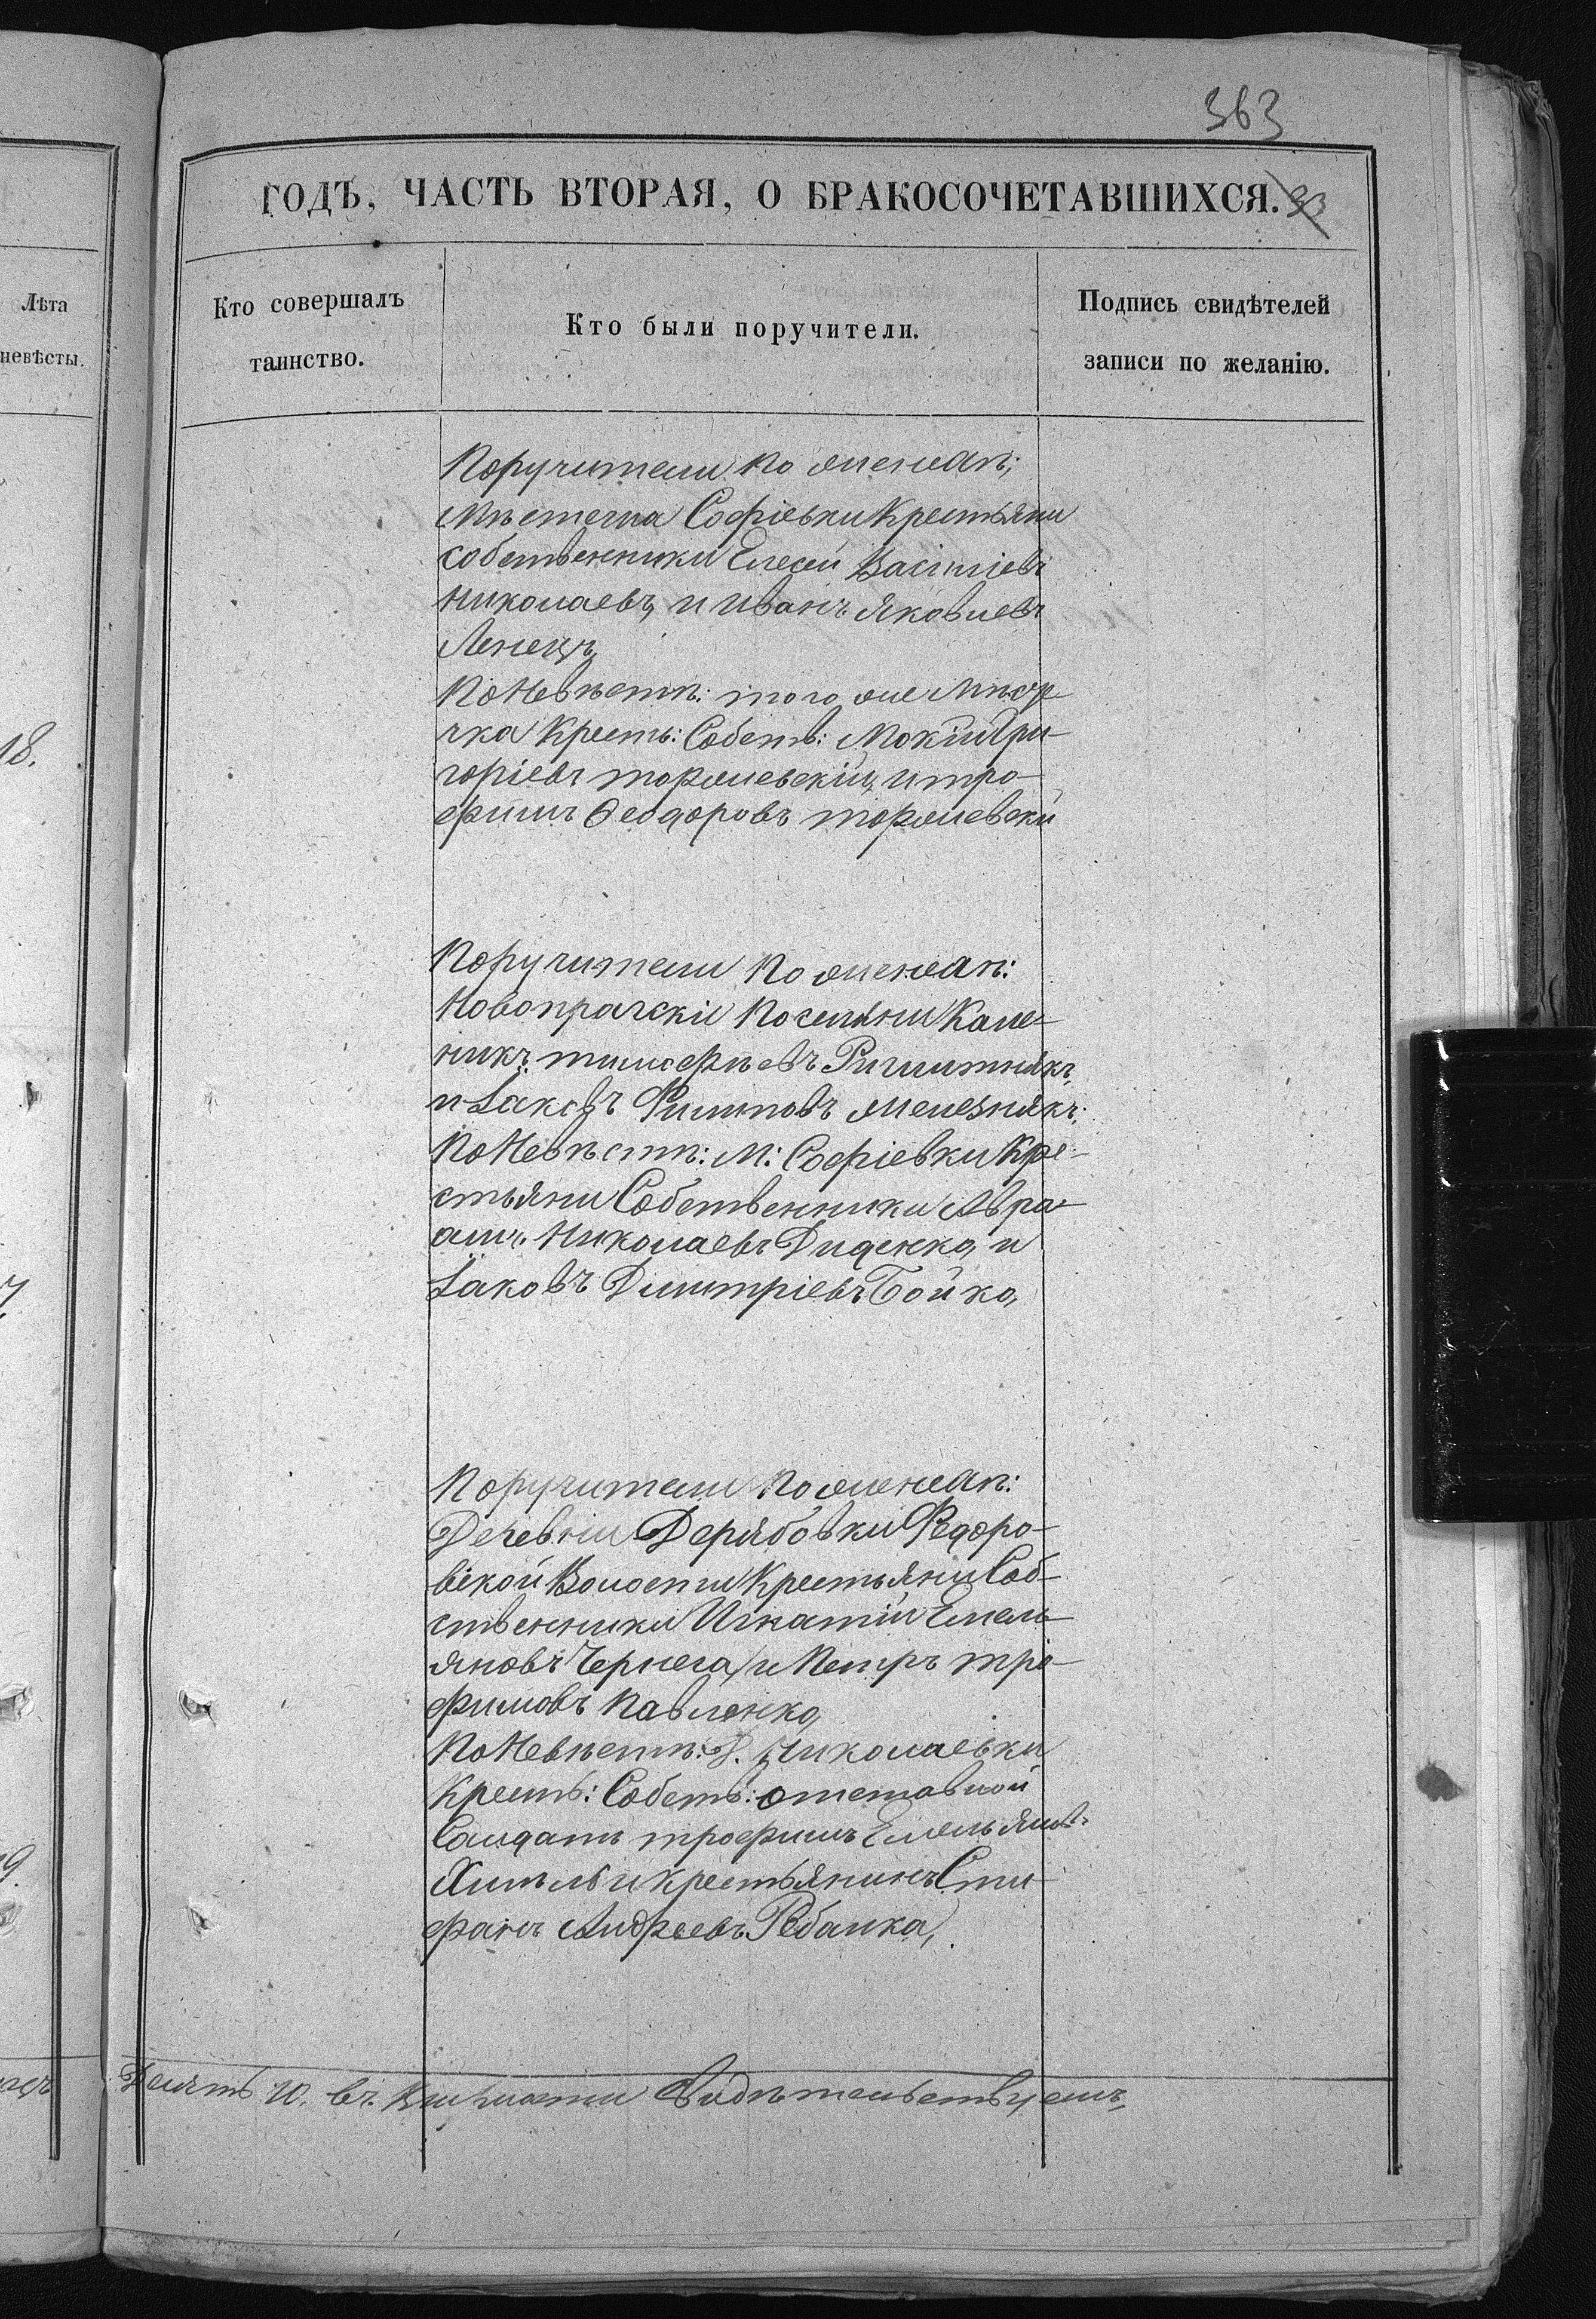 363
ГОДЪ, ЧАСТЬ ВТОРАЯ, О БРАКОСОЧЕТАВШИХСЯ. 33
Лѣта
невѣсты.
Кто совершалъ
таинство.
Кто были поручители.
Подпись свидѣтелей
записи по желанію.
18.
Поручители по жених&#1123;:
Мѣстечка Софіевки Крестьяни
собственники Елесей Васіліевъ
Николаевъ, и Иванъ Яковлевъ
Ленецъ,
По Невѣстѣ: того же Мѣсте-
чка Крестъ: Собств: Мокій Гри-
горіевъ
и Тро-
фимъ Ѳеодоровъ
Поручители По женихѣ:
Новопражскіе Поселяни Кале-
никъ Тимофѣевъ
и Іаковъ Филиповъ Мелезнякъ:
По Невѣстѣ: М: Софіевки Кре-
стьяни Собственники Авра-
амъ Николаевъ Диденко, и
Іаковъ Димитріевъ Бойко,
19.
Поручители По женихѣ:
Деревни Дерябовки Федоро-
вской Волости Крестьяни Соб-
ственники Игнатій Емель-
яновъ Чернега, и Петръ Тро-
фимовъ Павленко,
По Невѣстѣ: Д. Николаевки
Крестъ: Собств: отставной
Салдатъ Трофимъ Емельяновъ
Хиль и Крестьянинъ Сти-
фанъ Андреевъ Рѣбалка,
Десять 10. въ
Свидѣтельствуемъ,